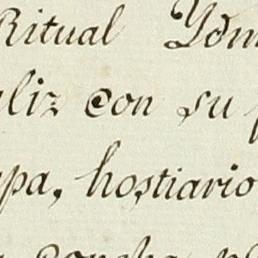 Ritual Ydm
aliz con su
pa, hostiario
concha